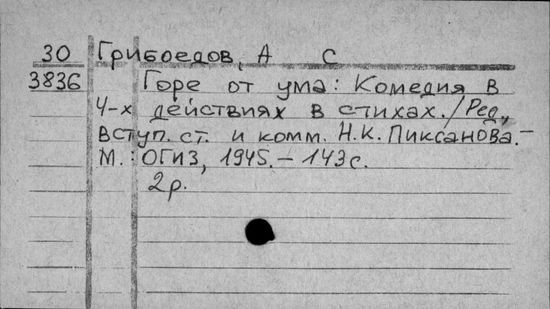 30 Грибоедов, А С
3836 Горе от ума: Комедия в
4-х действиях в стихах./Ред.,
вступ. ст. и комм. Н.К. Пиксанова.-
М.: ОГИЗ, 1945.- 143с.
2р.